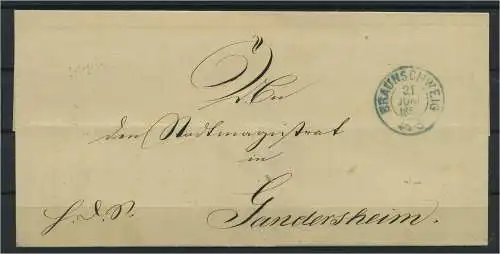 An
den Stadtmagistrat
in
Gandersheim.
H. d. S.
BRAUNSCHWEIG
21
JUN